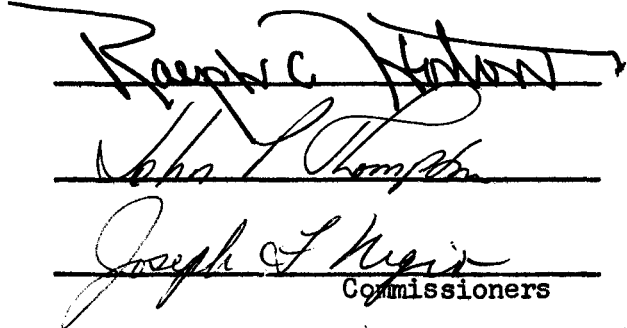 Ralph C Horton
John T Thompson
Joseph F Negri
Commissioners